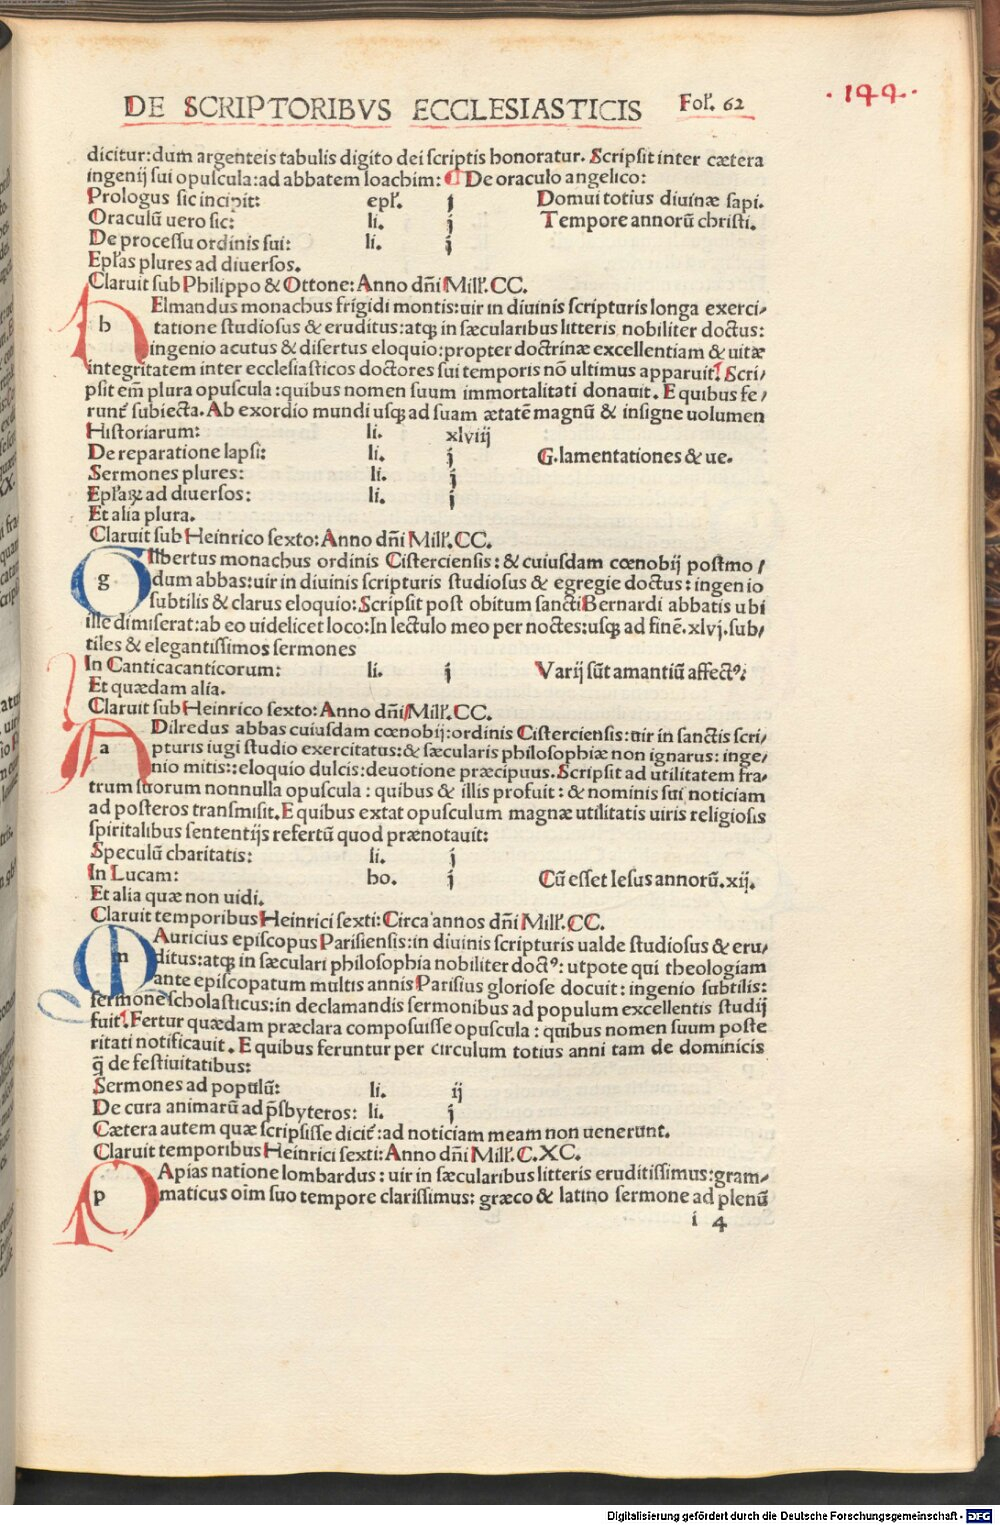 DE SCRIPTORIBVS ECCLESIASTICIS Fol'. 62
·144·
dicitur: dum argenteis tabulis digito dei scriptis honoratur. Scripsit inter cætera
ingenij sui opuscula: ad abbatem Ioachim: ¶ De oraculo angelico:
Prologus sic incipit: epl'. j Domui totius diuinæ sapi.
Oraculū uero sic: li. j Tempore annorū christi.
De processu ordinis sui: li. j
Epl'as plures ad diuersos.
Claruit sub Philippo & Ottone: Anno dn̄i Mill'. CC.
hElmandus monachus frigidi montis: uir in diuinis scripturis longa exerci/
tatione studiosus & eruditus: atq; in sæcularibus litteris nobiliter doctus:
ingenio acutus & disertus eloquio: propter doctrinæ excellentiam & uitæ
integritatem inter ecclesiasticos doctores sui temporis nō ultimus apparuit. Scri/
psit em̄ plura opuscula: quibus nomen suum immortalitati donauit. E quibus fe/
runt̄ subiecta. Ab exordio mundi usq; ad suam ætatē magnū & insigne uolumen
Historiarum: li. xlviij
De reparatione lapsi: li. j G. lamentationes & ue.
Sermones plures: li. j
Epl'aꝝ ad diuersos: li. j
Et alia plura.
Claruit sub Heinrico sexto: Anno dn̄i Mill'. CC.
gIlbertus monachus ordinis Cisterciensis: & cuiusdam cœnobij postmo/
dum abbas: uir in diuinis scripturis studiosus & egregie doctus: ingenio
subtilis & clarus eloquio: Scripsit post obitum sancti Bernardi abbatis ubi
ille dimiserat: ab eo uidelicet loco: In lectulo meo per noctes: usq; ad finē. xlvj. sub/
tiles & elegantissimos sermones
In Cantica canticorum: li. j Varij sūt amantiū affectꝰ:
Et quædam alia.
Claruit sub Heinrico sexto: Anno dn̄i Mill'. CC.
aDilredus abbas cuiusdam cœnobij: ordinis Cisterciensis: uir in sanctis scri/
pturis iugi studio exercitatus: & sæcularis philosophiæ non ignarus: inge/
nio mitis:: eloquio dulcis: deuotione præcipuus. Scripsit ad utilitatem fra/
trum suorum nonnulla opuscula: quibus & illis profuit: & nominis sui noticiam
ad posteros transmisit. E quibus extat opusculum magnæ utilitatis uiris religiosis
spiritalibus sententijs refertū quod prænotauit:
Speculū charitatis: li. j
In Lucam: ho. j Cū esset Iesus annorū. xij.
Et alia quæ non uidi.
Claruit temporibus Heinrici sexti: Circa annos dn̄i Mill'. CC.
mAuricius episcopus Parisiensis: in diuinis scripturis ualde studiosus & eru/
ditus: atq; in sæculari philosophia nobiliter doctꝰ: utpote qui theologiam
ante episcopatum multis annis Parisius gloriose docuit: ingenio subtilis:
sermone scholasticus: in declamandis sermonibus ad populum excellentis studij
fuit. Fertur quædam præclara composuisse opuscula: quibus nomen suum poste
ritati notificauit. E quibus feruntur per circulum totius anni tam de dominicis
q̄ de festiuitatibus:
Sermones ad populū: li. ij
De cura animarū ad p̄sbyteros: li. j
Cætera autem quæ scripsisse dicit̄: ad noticiam meam non uenerunt.
Claruit temporibus Heinrici sexti: Anno dn̄i Mill'. C. XC.
pApias natione lombardus: uir in sæcularibus litteris eruditissimus: gram/
maticus oīm suo tempore clarissimus: græco & latino sermone ad plenū
i 4
Digitalisierung gefördert durch die Deutsche Forschungsgemeinschaft - DFG